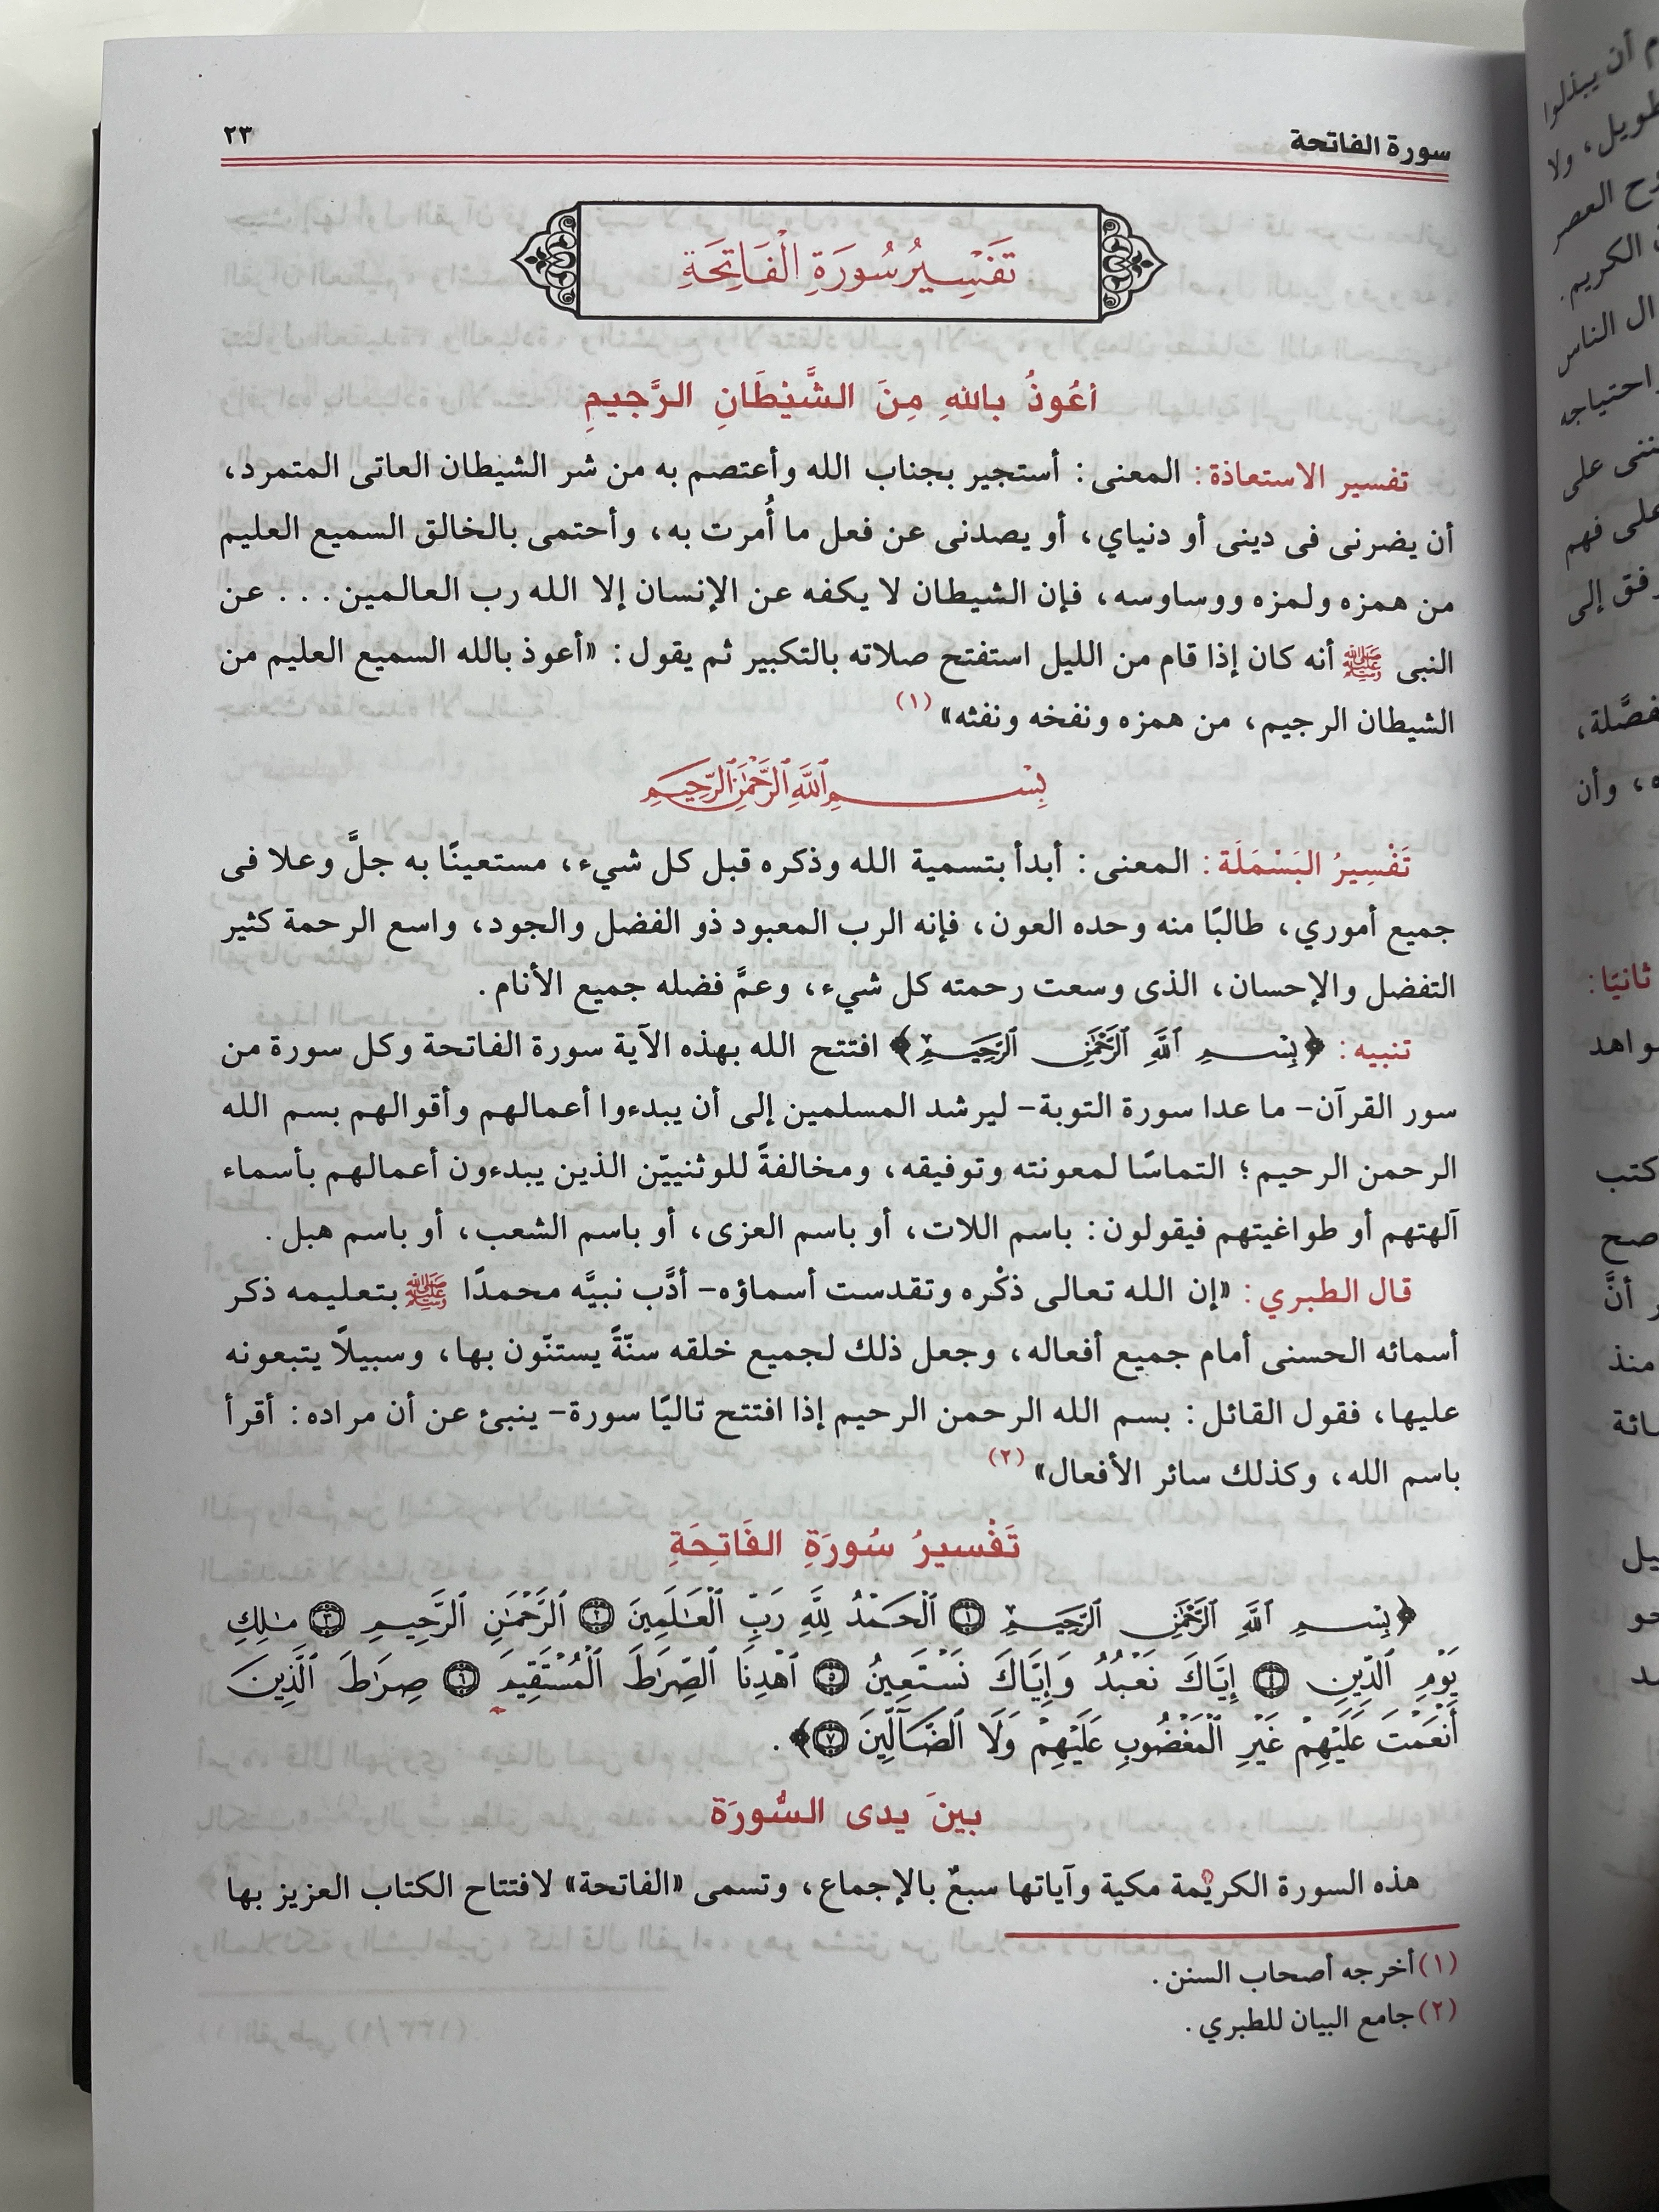 سورة الفاتحة
٢٣
تَفْسِيرُ سُورَةِ الْفَاتِحَةِ
أعُوذُ باللهِ مِنَ الشَّيْطَانِ الرَّجيمِ
تفسير الاستعاذة: المعنى: أستجير بجناب الله وأعتصم به من شر الشيطان العاتى المتمرد،
أن يضرنى فى دينى أو دنياي، أو يصدنى عن فعل ما أُمرت به، وأحتمى بالخالق السميع العليم
من همزه ولمزه ووساوسه، فإن الشيطان لا يكفه عن الإنسان إلا الله رب العالمين... عن
النبى ﷺ أنه كان إذا قام من الليل استفتح صلاته بالتكبير ثم يقول: «أعوذ بالله السميع العليم من
الشيطان الرجيم، من همزه ونفخه ونفثه» (١)
بِسْمِ ٱللَّهِ ٱلرَّحْمَٰنِ ٱلرَّحِيمِ
تَفْسِيرُ البَسْمَلَة: المعنى: أبدأ بتسمية الله وذكره قبل كل شيء، مستعينًا به جلَّ وعلا فى
جميع أموري، طالبًا منه وحده العون، فإنه الرب المعبود ذو الفضل والجود، واسع الرحمة كثير
التفضل والإحسان، الذى وسعت رحمته كل شيء، وعمَّ فضله جميع الأنام.
تنبيه: ﴿بِسْمِ ٱللَّهِ ٱلرَّحْمَٰنِ ٱلرَّحِيمِ﴾ افتتح الله بهذه الآية سورة الفاتحة وكل سورة من
سور القرآن- ما عدا سورة التوبة- ليرشد المسلمين إلى أن يبدءوا أعمالهم وأقوالهم بسم الله
الرحمن الرحيم؛ التماسًا لمعونته وتوفيقه، ومخالفةً للوثنييّن الذين يبدءون أعمالهم بأسماء
آلهتهم أو طواغيتهم فيقولون: باسم اللات، أو باسم العزى، أو باسم الشعب، أو باسم هبل.
قال الطبري: «إن الله تعالى ذكْره وتقدست أسماؤه- أدَّب نبيَّه محمدًا ﷺ بتعليمه ذكر
أسمائه الحسنى أمام جميع أفعاله، وجعل ذلك لجميع خلقه سنّةً يستنّون بها، وسبيلاً يتبعونه
عليها، فقول القائل: بسم الله الرحمن الرحيم إذا افتتح تاليًا سورة- ينبئ عن أن مراده: أقرأ
باسم الله، وكذلك سائر الأفعال» (٢)
تَفْسيرُ سُورَةِ الفَاتِحَةِ
﴿بِسْمِ ٱللَّهِ ٱلرَّحْمَٰنِ ٱلرَّحِيمِ ۝١ ٱلْحَمْدُ لِلَّهِ رَبِّ ٱلْعَٰلَمِينَ ۝٢ ٱلرَّحْمَٰنِ ٱلرَّحِيمِ ۝٣ مَٰلِكِ
يَوْمِ ٱلدِّينِ ۝٤ إِيَّاكَ نَعْبُدُ وَإِيَّاكَ نَسْتَعِينُ ۝٥ ٱهْدِنَا ٱلصِّرَٰطَ ٱلْمُسْتَقِيمَ ۝٦ صِرَٰطَ ٱلَّذِينَ
أَنْعَمْتَ عَلَيْهِمْ غَيْرِ ٱلْمَغْضُوبِ عَلَيْهِمْ وَلَا ٱلضَّآلِّينَ ۝٧﴾.
بينَ يدى السُّورَة
هذه السورة الكريمة مكية وآياتها سبعٌ بالإجماع، وتسمى «الفاتحة» لافتتاح الكتاب العزيز بها
(١) أخرجه أصحاب السنن.
(٢) جامع البيان للطبري.
أن يبذلوا
ولا
العصر
الكريم.
ال الناس
احتياجه
على
على فهم
إلى
وأن
ثانيًا:
كتب
صح
أنَّ
منذ